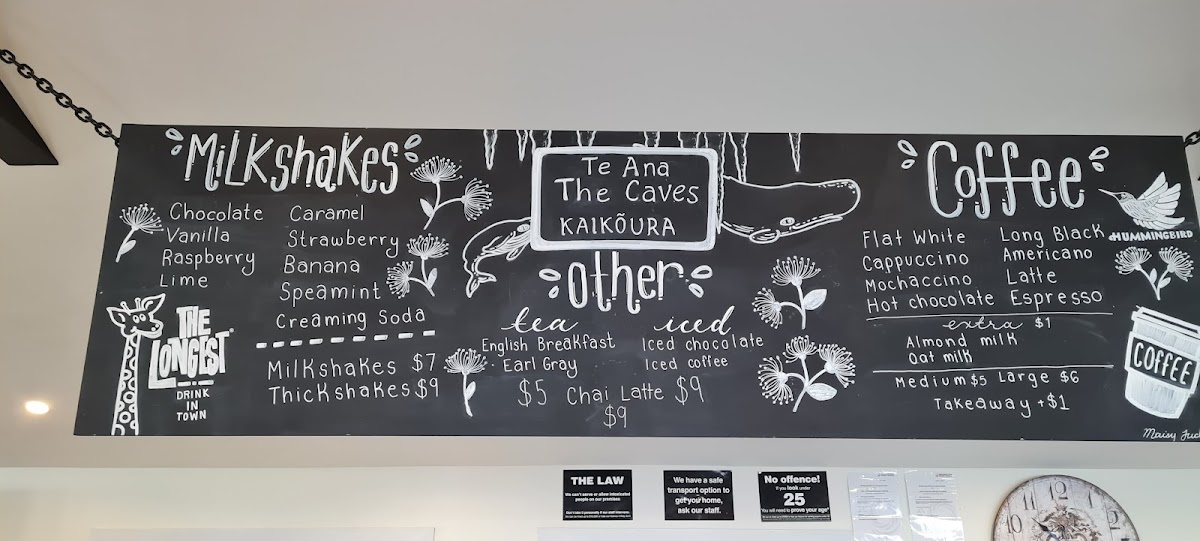 Milkshakes
Chocolate Caramel
Vanilla Strawberry
Raspberry Banana
Lime Speamint
Creaming Soda
Milkshakes $7
Thickshakes $9
THE
LONGEST
DRINK
IN
TOWN
Te Ana
The Caves
KAIKŌURA
other
tea
English Breakfast
Earl Gray
$5
iced
Iced chocolate
Iced coffee
$9
Chai Latte
$9
Coffee
HUMMINGBIRD
Flat White Long Black
Cappuccino Americano
Mochaccino Latte
Hot chocolate Espresso
extra $1
Almond milk
Oat milk
Medium $5 Large $6
Takeaway +$1
COFFEE
Maisy
THE LAW
We can't serve or allow intoxicated
people on our premises
We have a safe
transport option to
get you home,
ask our staff.
No offence!
If you look under
25
You will need to prove your age*